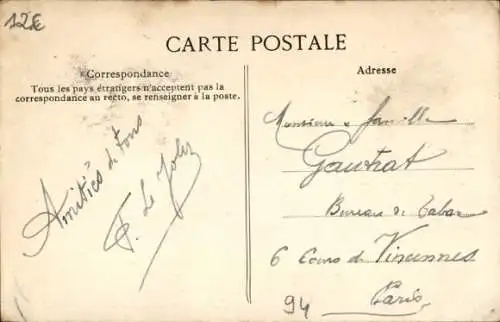 12€
CARTE POSTALE
Correspondance
Tous les pays étrangers n'acceptent pas la
correspondance au recto, se renseigner à la poste.
Amitiés de tous
Adresse
Monsieur & famille
Bureau de Tabac
6 Cours de Vincennes
Paris
94